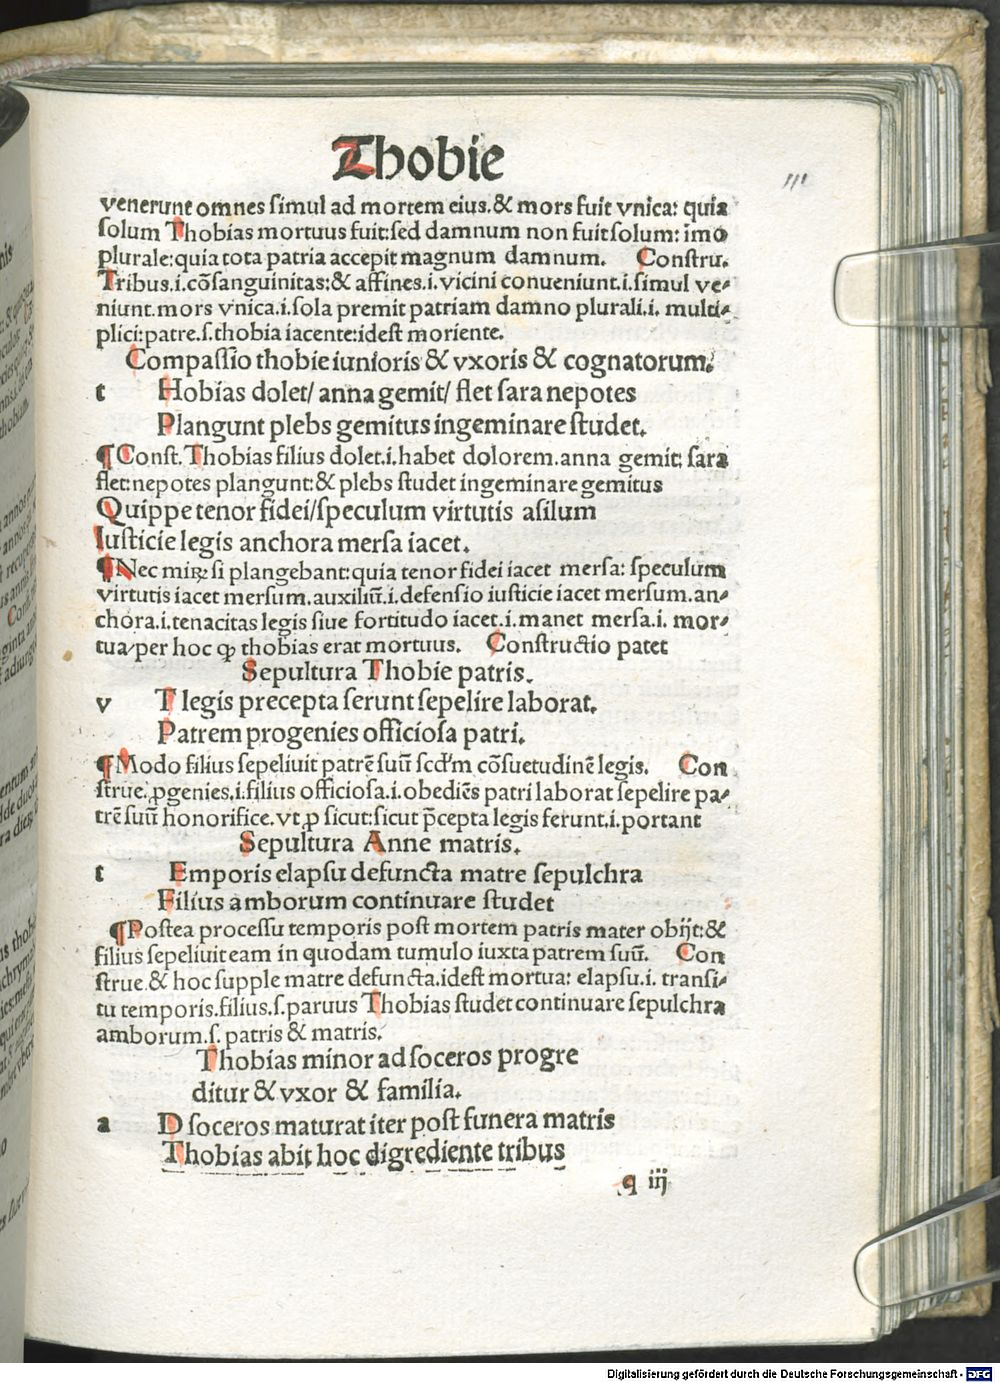 Thobie
venerunt omnes simul ad mortem eius.& mors fuit vnica: quia
solum Thobias mortuus fuit:sed damnum non fuit solum: imo
plurale:quia tota patria accepit magnum damnum. Constru.
Tribus.i.cõsanguinitas:& affines.i.vicini conueniunt.i.simul ve-
niunt.mors vnica.i.sola premit patriam damno plurali.i. multi-
plici:patre.s.thobia iacente:idest moriente.
Compassio thobie iunioris & vxoris & cognatorum.
t Hobias dolet/ anna gemit/ flet sara nepotes
Plangunt plebs gemitus ingeminare studet.
¶ Const. Thobias filius dolet.i.habet dolorem.anna gemit: sara
flet:nepotes plangunt:& plebs studet ingeminare gemitus
Quippe tenor fidei/speculum virtutis asilum
Iusticie legis anchora mersa iacet.
¶ Nec miꝝ si plangebant:quia tenor fidei iacet mersa: speculum
virtutis iacet mersum.auxiliũ.i.defensio iusticie iacet mersum.an-
chora.i.tenacitas legis siue fortitudo iacet.i.manet mersa.i. mor-
tua/per hoc ꝙ thobias erat mortuus. Constructio patet
Sepultura Thobie patris.
v T legis precepta ferunt sepelire laborat.
Patrem progenies officiosa patri.
¶ Modo filius sepeliuit patrẽ suũ scd'm cõsuetudinẽ legis. Con
strue.ꝓgenies.i.filius officiosa.i.obediẽs patri laborat sepelire pa-
trẽ suũ honorifice.vt ꝓ sicut:sicut p̄cepta legis ferunt.i.portant
Sepultura Anne matris.
t Emporis elapsu defuncta matre sepulchra
Filius amborum continuare studet
¶ Postea processu temporis post mortem patris mater obijt:&
filius sepeliuit eam in quodam tumulo iuxta patrem suũ. Con
strue.& hoc supple matre defuncta.idest mortua: elapsu.i. transi-
tu temporis.filius.s.paruus Thobias studet continuare sepulchra
amborum.s. patris & matris.
Thobias minor ad soceros progre
ditur & vxor & familia.
a D soceros maturat iter post funera matris
Thobias abit hoc digrediente tribus
q iij
Digitalisierung gefördert durch die Deutsche Forschungsgemeinschaft - DFG